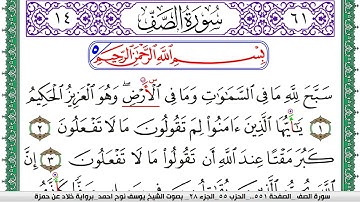 ٦١ سُورَةُ الصَّفِّ ١٤
بِسْمِ اللَّهِ الرَّحْمَٰنِ الرَّحِيمِ
سَبَّحَ لِلَّهِ مَا فِي السَّمَٰوَٰتِ وَمَا فِي الْأَرْضِ ۖ وَهُوَ الْعَزِيزُ الْحَكِيمُ
١ يَٰٓأَيُّهَا الَّذِينَ ءَامَنُوا۟ لِمَ تَقُولُونَ مَا لَا تَفْعَلُونَ ٢
كَبُرَ مَقْتًا عِندَ اللَّهِ أَن تَقُولُوا۟ مَا لَا تَفْعَلُونَ ٣ إِنَّ
سورة الصف الصفحة ٥٥١، الحزب ٥٥، الجزء ٢٨ بصوت الشيخ يوسف نوح أحمد برواية خلاد عن حمزة